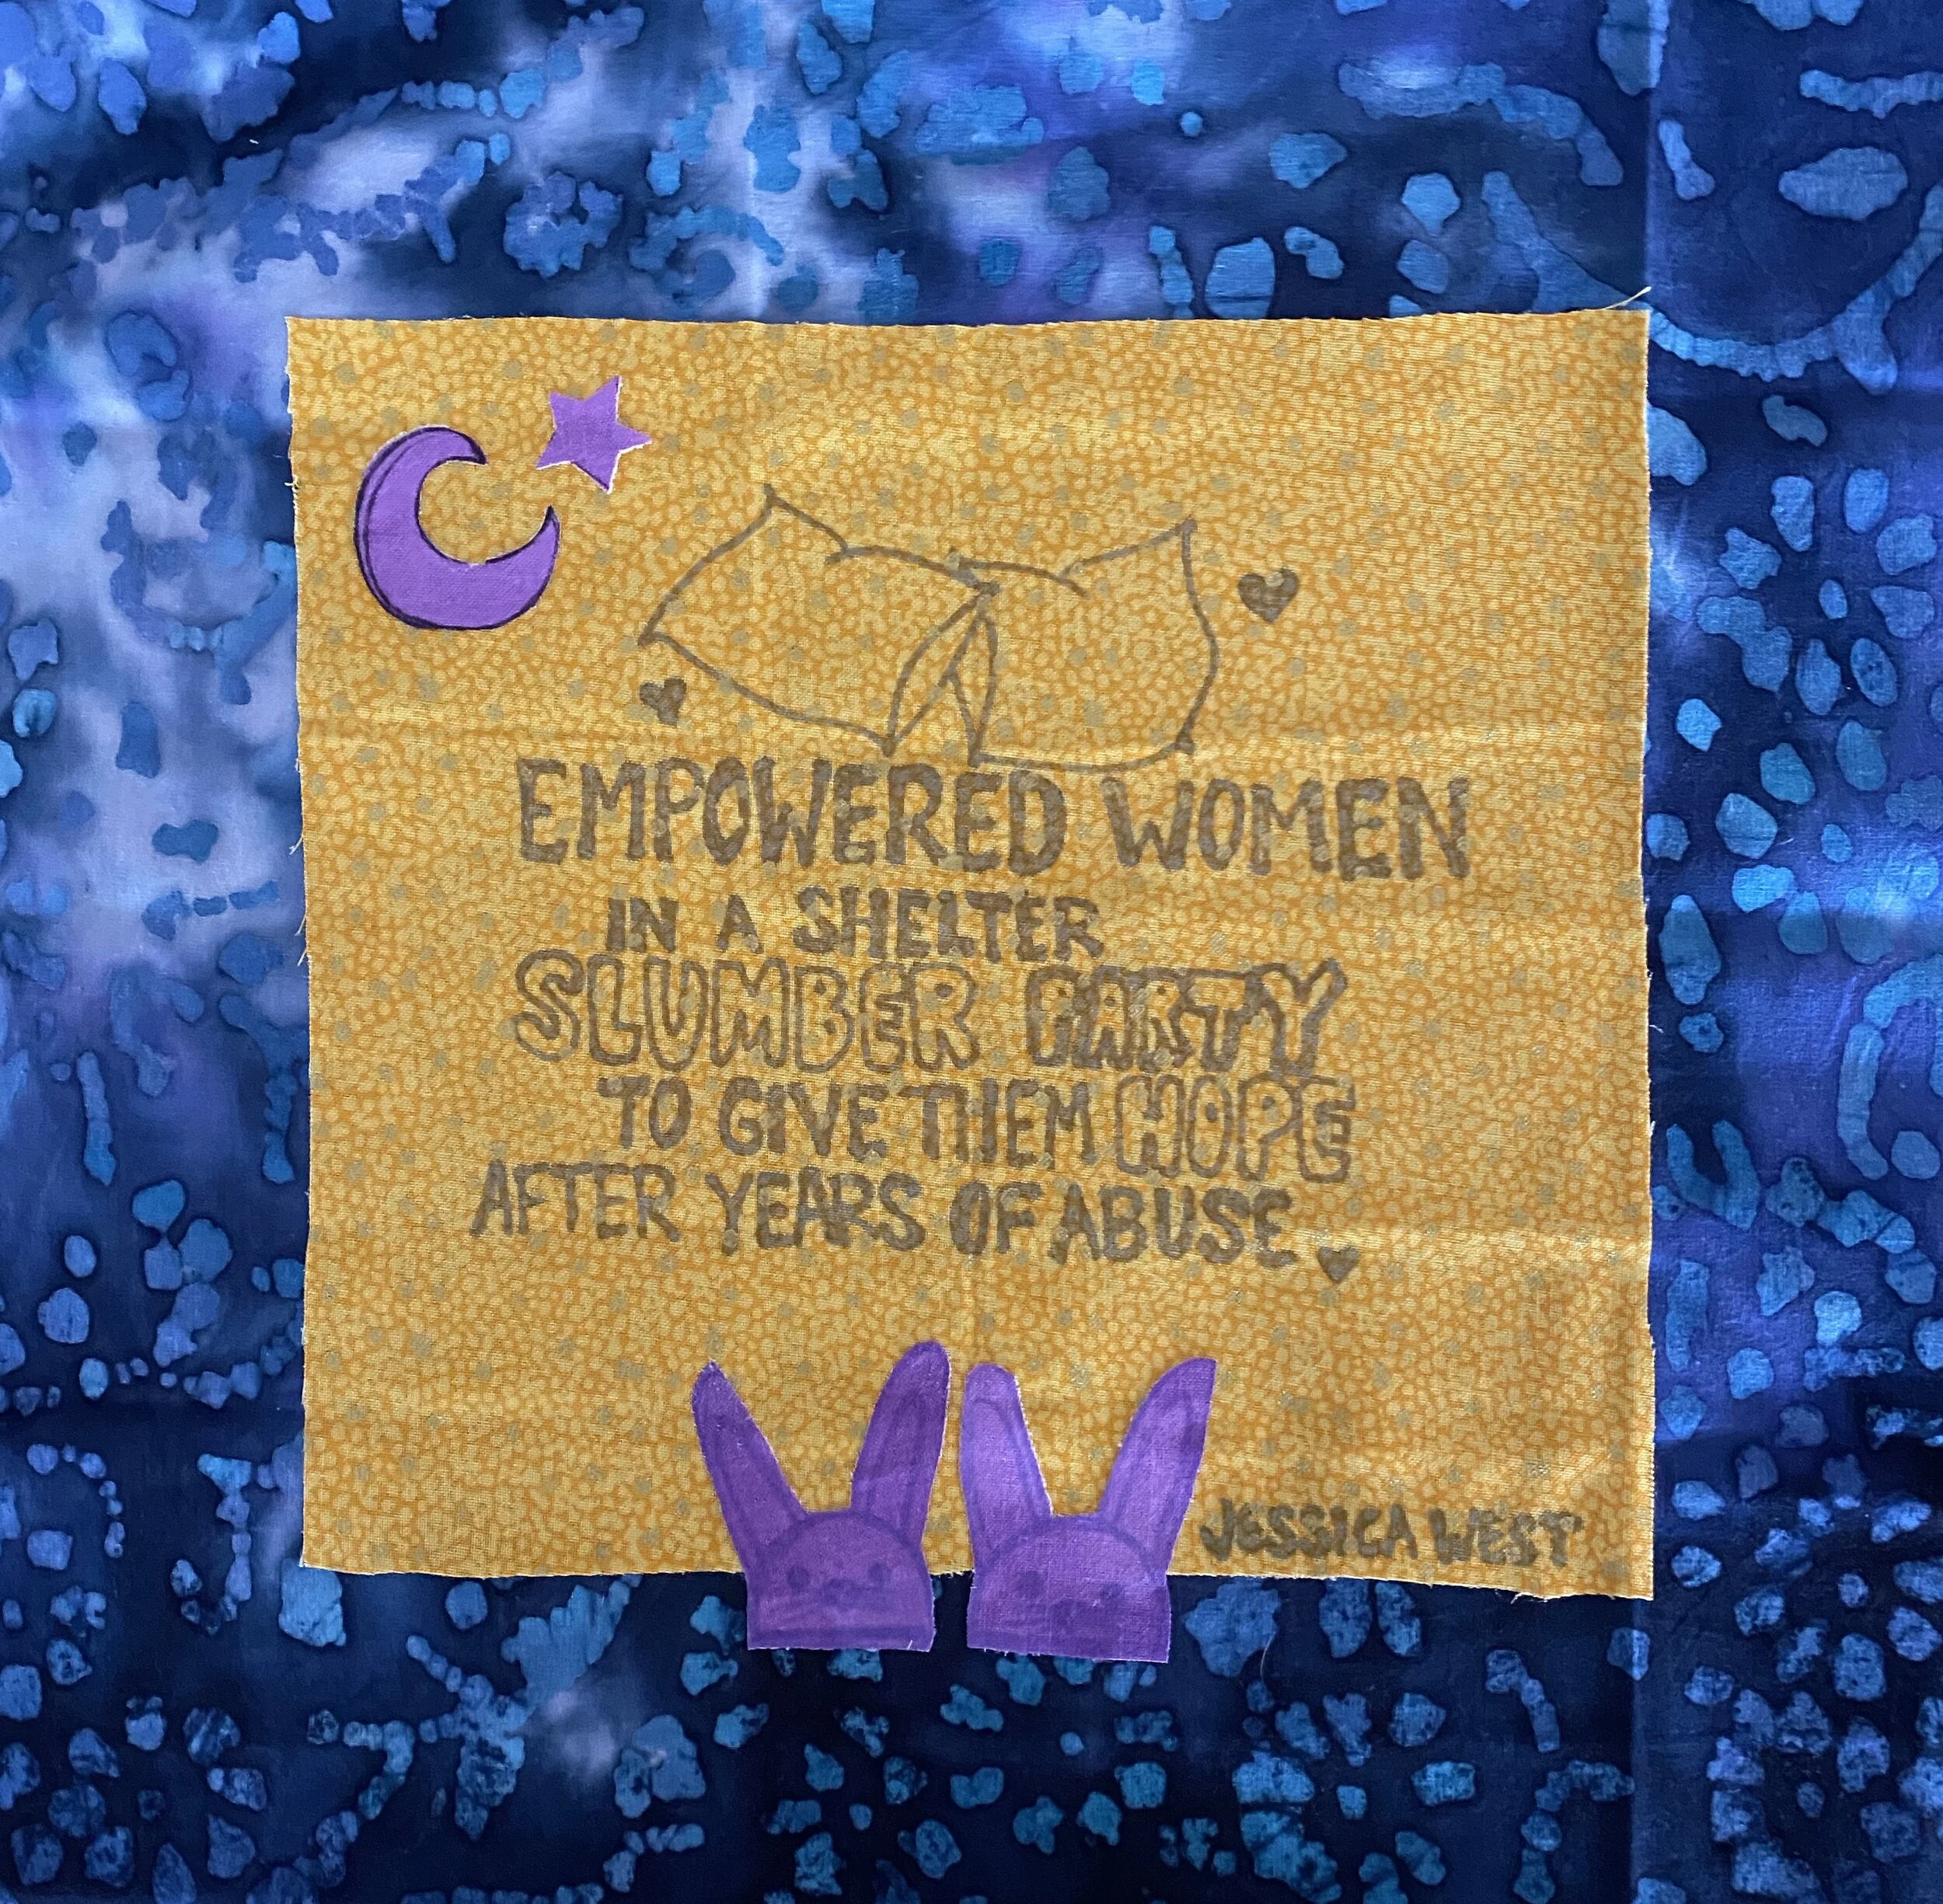 EMPOWERED WOMEN
IN A SHELTER
SLUMBER PARTY
TO GIVE THEM HOPE
AFTER YEARS OF ABUSE.
JESSICA WEST